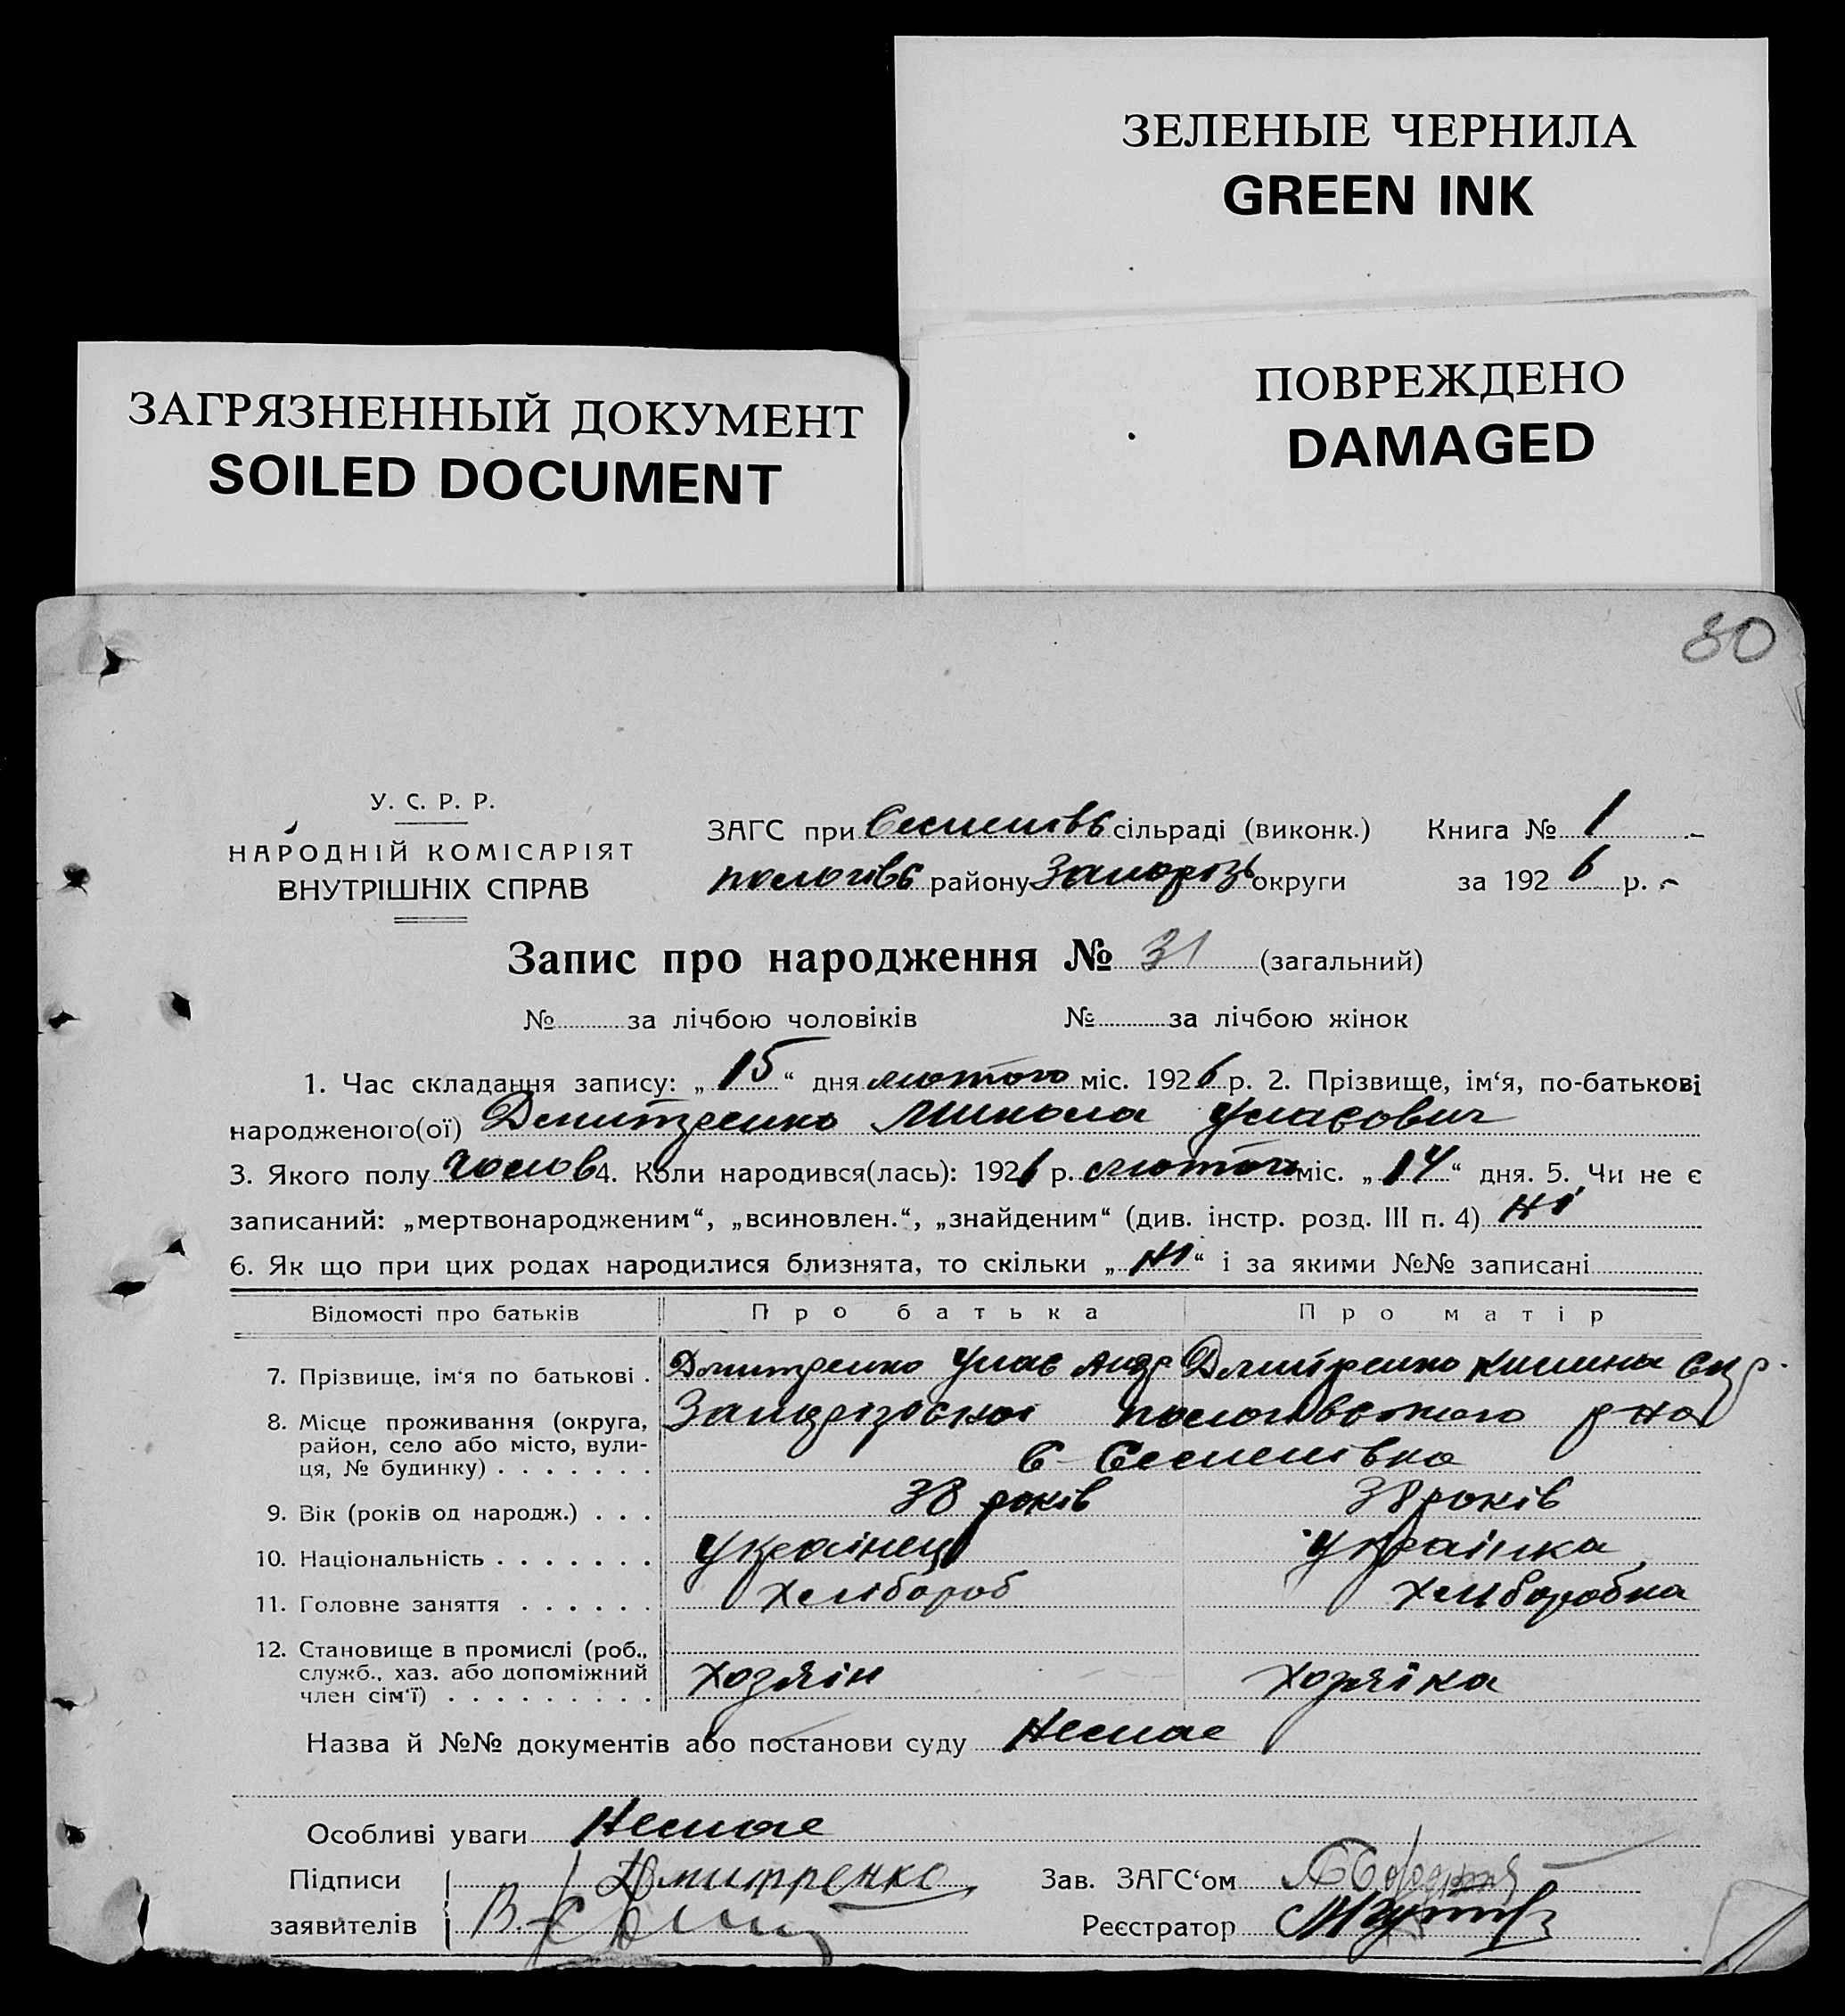 ЗЕЛЕНЫЕ ЧЕРНИЛА
GREEN INK
ПОВРЕЖДЕНО
DAMAGED
ЗАГРЯЗНЕННЫЙ ДОКУМЕНТ
SOILED DOCUMENT
80
У. С. Р. Р.
НАРОДНІЙ КОМІСАРІЯТ
ВНУТРІШНІХ СПРАВ
ЗАГС при Семенівс сільраді (виконк.) Книга № 1
пологівс району Запорізь округи за 1926 р.
Запис про народження № 31 (загальний)
№ за лічбою чоловіків № за лічбою жінок
1. Час складання запису: „15“ дня лютого міс. 1926 р. 2. Прізвище, ім‘я, по-батькові
народженого(ої) Дмитренко Микола Уласович
3. Якого полу чолов 4. Коли народився(лась): 1926 р. лютого міс. „14“ дня. 5. Чи не є
записаний: „мертвонародженим“, „всиновлен.“, „знайденим“ (див. інстр. розд. III п. 4) ні
6. Як що при цих родах народилися близнята, то скільки „ні“ і за якими №№ записані
Відомості про батьків Про батька Про матір
7. Прізвище, ім‘я по батькові . Дмитренко Улас Андр Дмитренко Килина
8. Місце проживання (округа, Запорізської пологівського р на
район, село або місто, вули-
ця, № будинку) . . . . . . . с Семенівка
9. Вік (років од народж.) . . . 38 років 38 років
10. Національність . . . . . . . Українец Українка
11. Головне заняття . . . . . . Хлібороб хліборобка
12. Становище в промислі (роб.,
служб., хаз. або допоміжний Хозяін Хозяїка
член сім‘ї) . . . . . . . . .
Назва й №№ документів або постанови суду Немає
Особливі уваги Немає
Підписи Дмитренко Зав. ЗАГС‘ом
заявителів Реєстратор